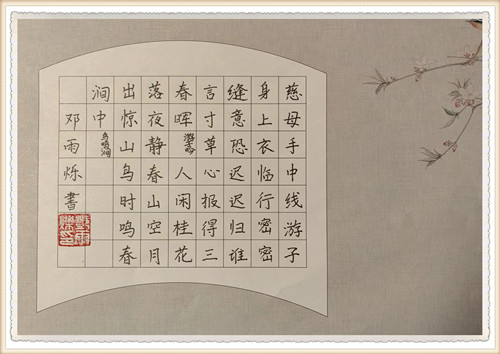 慈母手中线游子
身上衣临行密密
缝意恐迟迟归谁
言寸草心报得三
春晖 游子吟 人闲桂花
落夜静春山空月
出惊山鸟时鸣春
涧中 鸟鸣涧
邓雨烁書